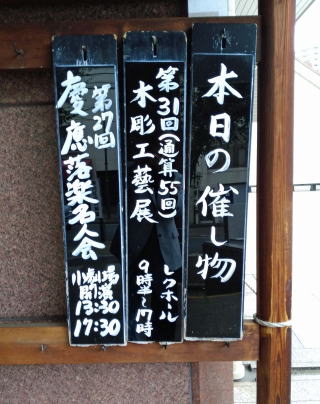 本日の催し物
第31回(通算55回)
木彫工藝展
レクホール
9時半〜17時
第27回
慶應落楽名人会
小劇場
開演
13:30
17:30